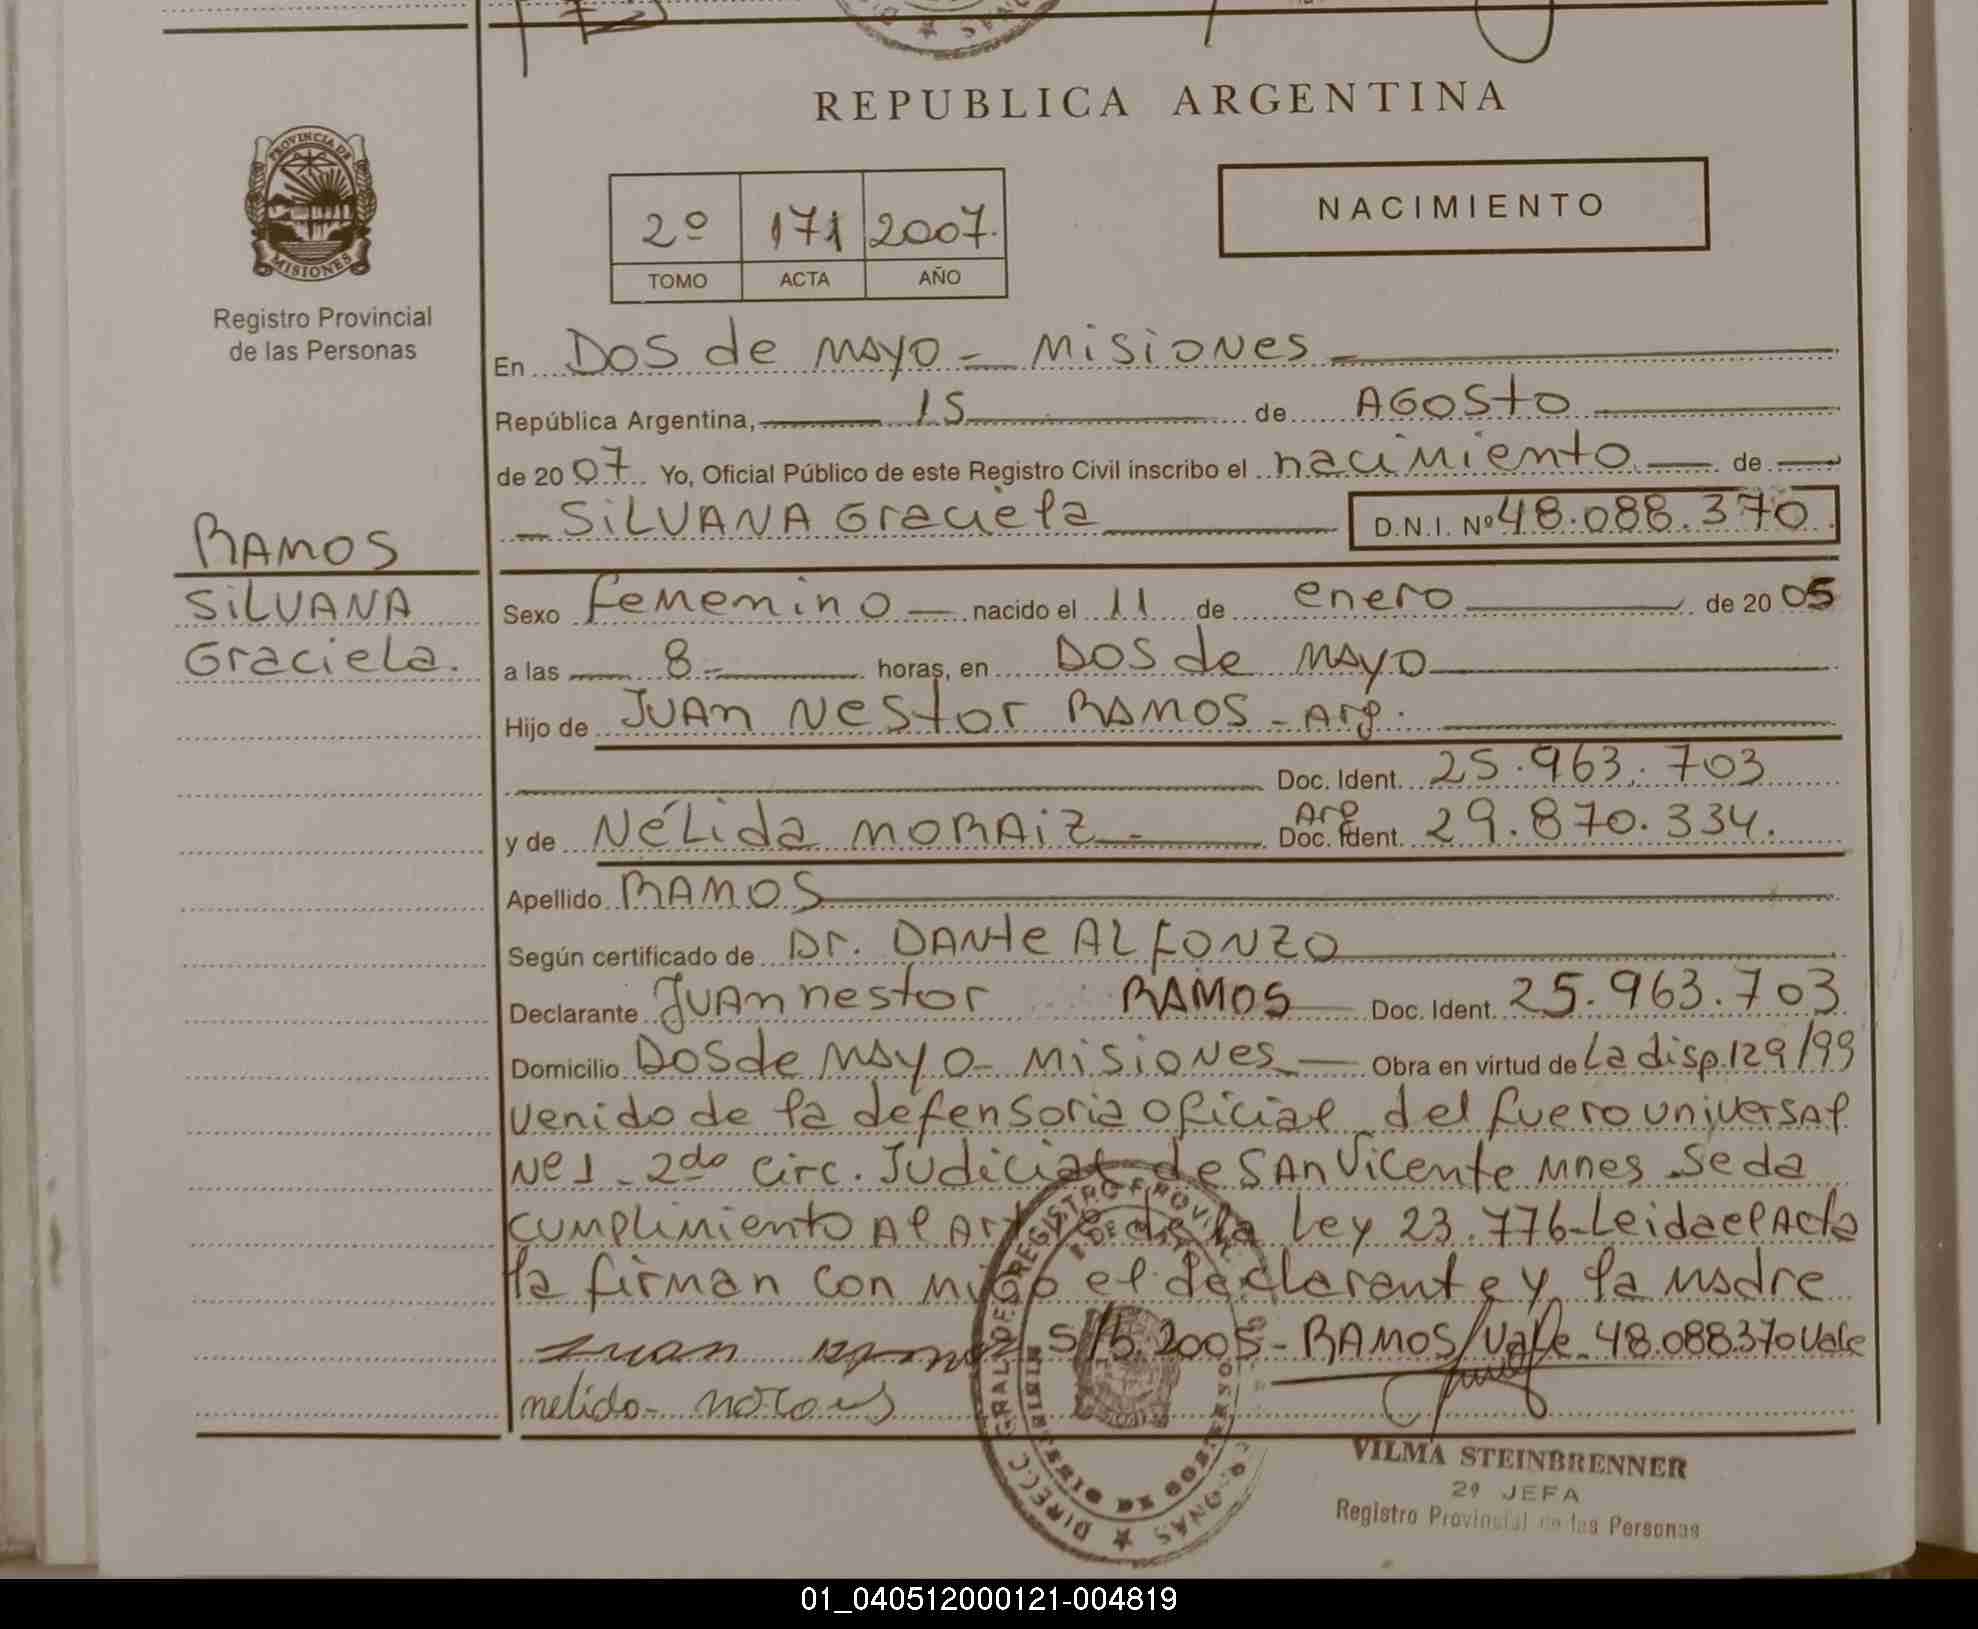 REPUBLICA ARGENTINA
PROVINCIA DE
MISIONES
Registro Provincial
de las Personas
2º 171 2007.
TOMO ACTA AÑO
NACIMIENTO
En Dos de mayo - Misiones
República Argentina, 15 de AGOSto
de 2007 Yo, Oficial Público de este Registro Civil inscribo el nacimiento de
SiLVANA Graciela D.N.I. Nº 48.088.370
RAMOS
SiLVANA
Graciela.
Sexo femenino nacido el 11 de enero de 2005
a las 8 horas, en Dos de mayo
Hijo de JUAN Nestor RAMOS - Arg.
Doc. Ident. 25.963.703
y de NéLida MORAiZ - Arg Doc. Ident. 29.870.334.
Apellido RAMOS
Según certificado de Dr. DANte ALFONZO
Declarante JUAN nestor RAMOS Doc. Ident. 25.963.703
Domicilio Dos de mayo - Misiones Obra en virtud de La disp. 129/99
venido de la defensoria oficial del fuero universal
Nº1 - 2do Circ. Judicial de SAN Vicente Mnes Se da
cumplimiento Al Art de la Ley 23.776 - Leida el Acta
la firman con migo el declarante y la madre
Juan Ramos S/b. 2005 - RAMOS/Vale - 48.088.370 Vale
nelida
DIRECC. GRAL. DE REGISTRO PROVIN PERSONAS
MINISTERIO DE GOBIERNO
VILMA STEINBRENNER
2º JEFA
Registro Provincial de las Personas
01_040512000121-004819